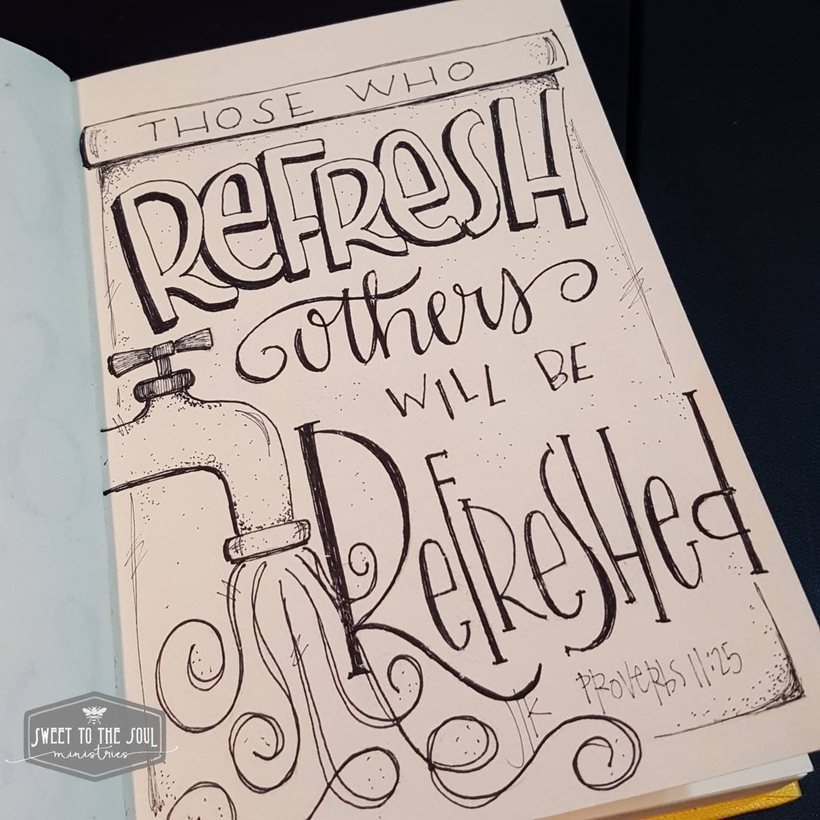 THOSE WHO
REFResH
others
WILL BE
ReFResHed
PROVerbs 11:25
JK
SWEET TO THE SOUL
ministries